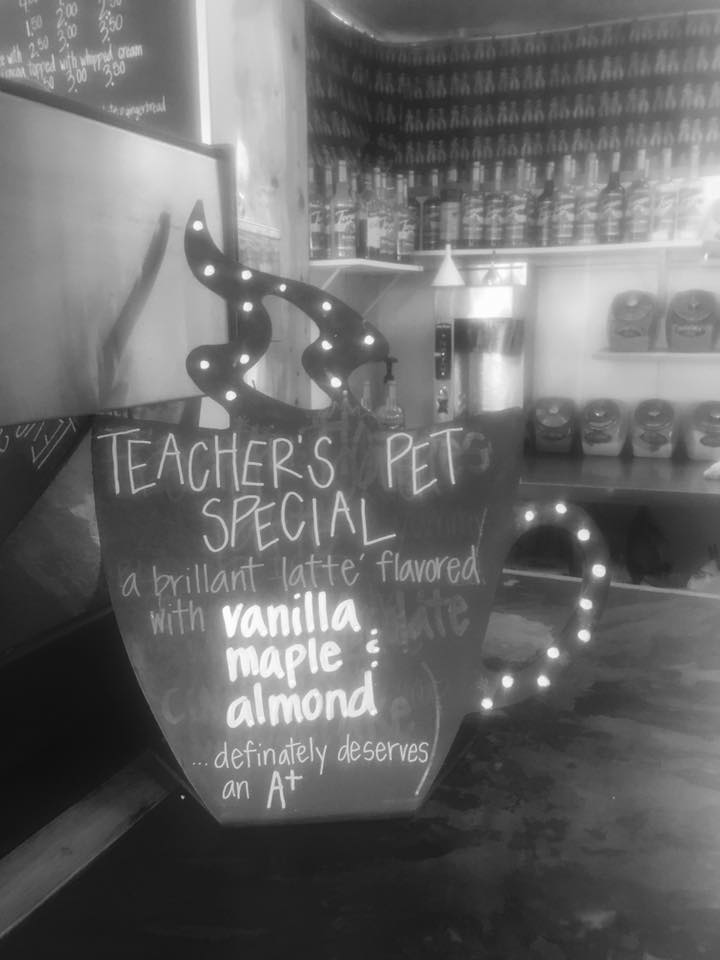 2.00
1.50 2.00 2.50
2.50 3.00 3.50
topped with whipped cream
3.00 3.50
gingerbread
TEACHER'S PET
SPECIAL
a brillant latte' flavored
with vanilla
maple &
almond
...definately deserves
an A+